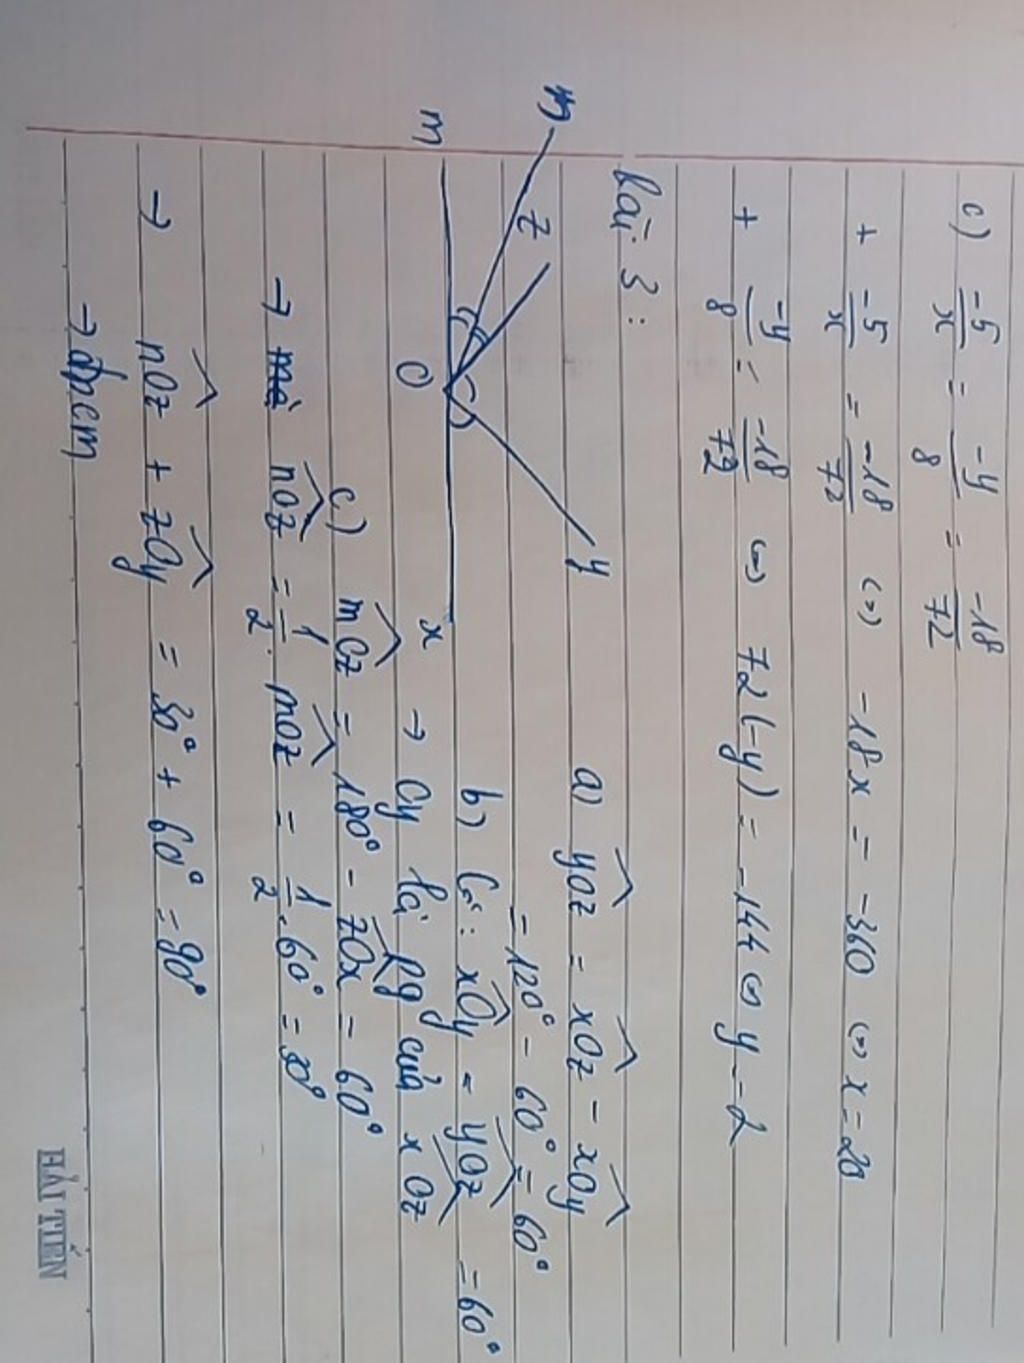 c) -5/x = -y/8 = -18/72
+ -5/x = -18/72 <=> -18x = -360 <=> x = 20
+ -y/8 = -18/72 <=> 72(-y) = -144 <=> y = 2
bài 3:
n
m
z
O
y
x
a) yOz = xOz - xOy
= 120° - 60° = 60°
b) Có: xOy = yOz = 60°
→ Oy là pg của xOz
c) mOz = 180° - zOx = 60°
→ nOz = 1/2 . mOz = 1/2 . 60° = 30°
→ nOz + zOy = 30° + 60° = 90°
→ đpcm
HẢI TIẾN